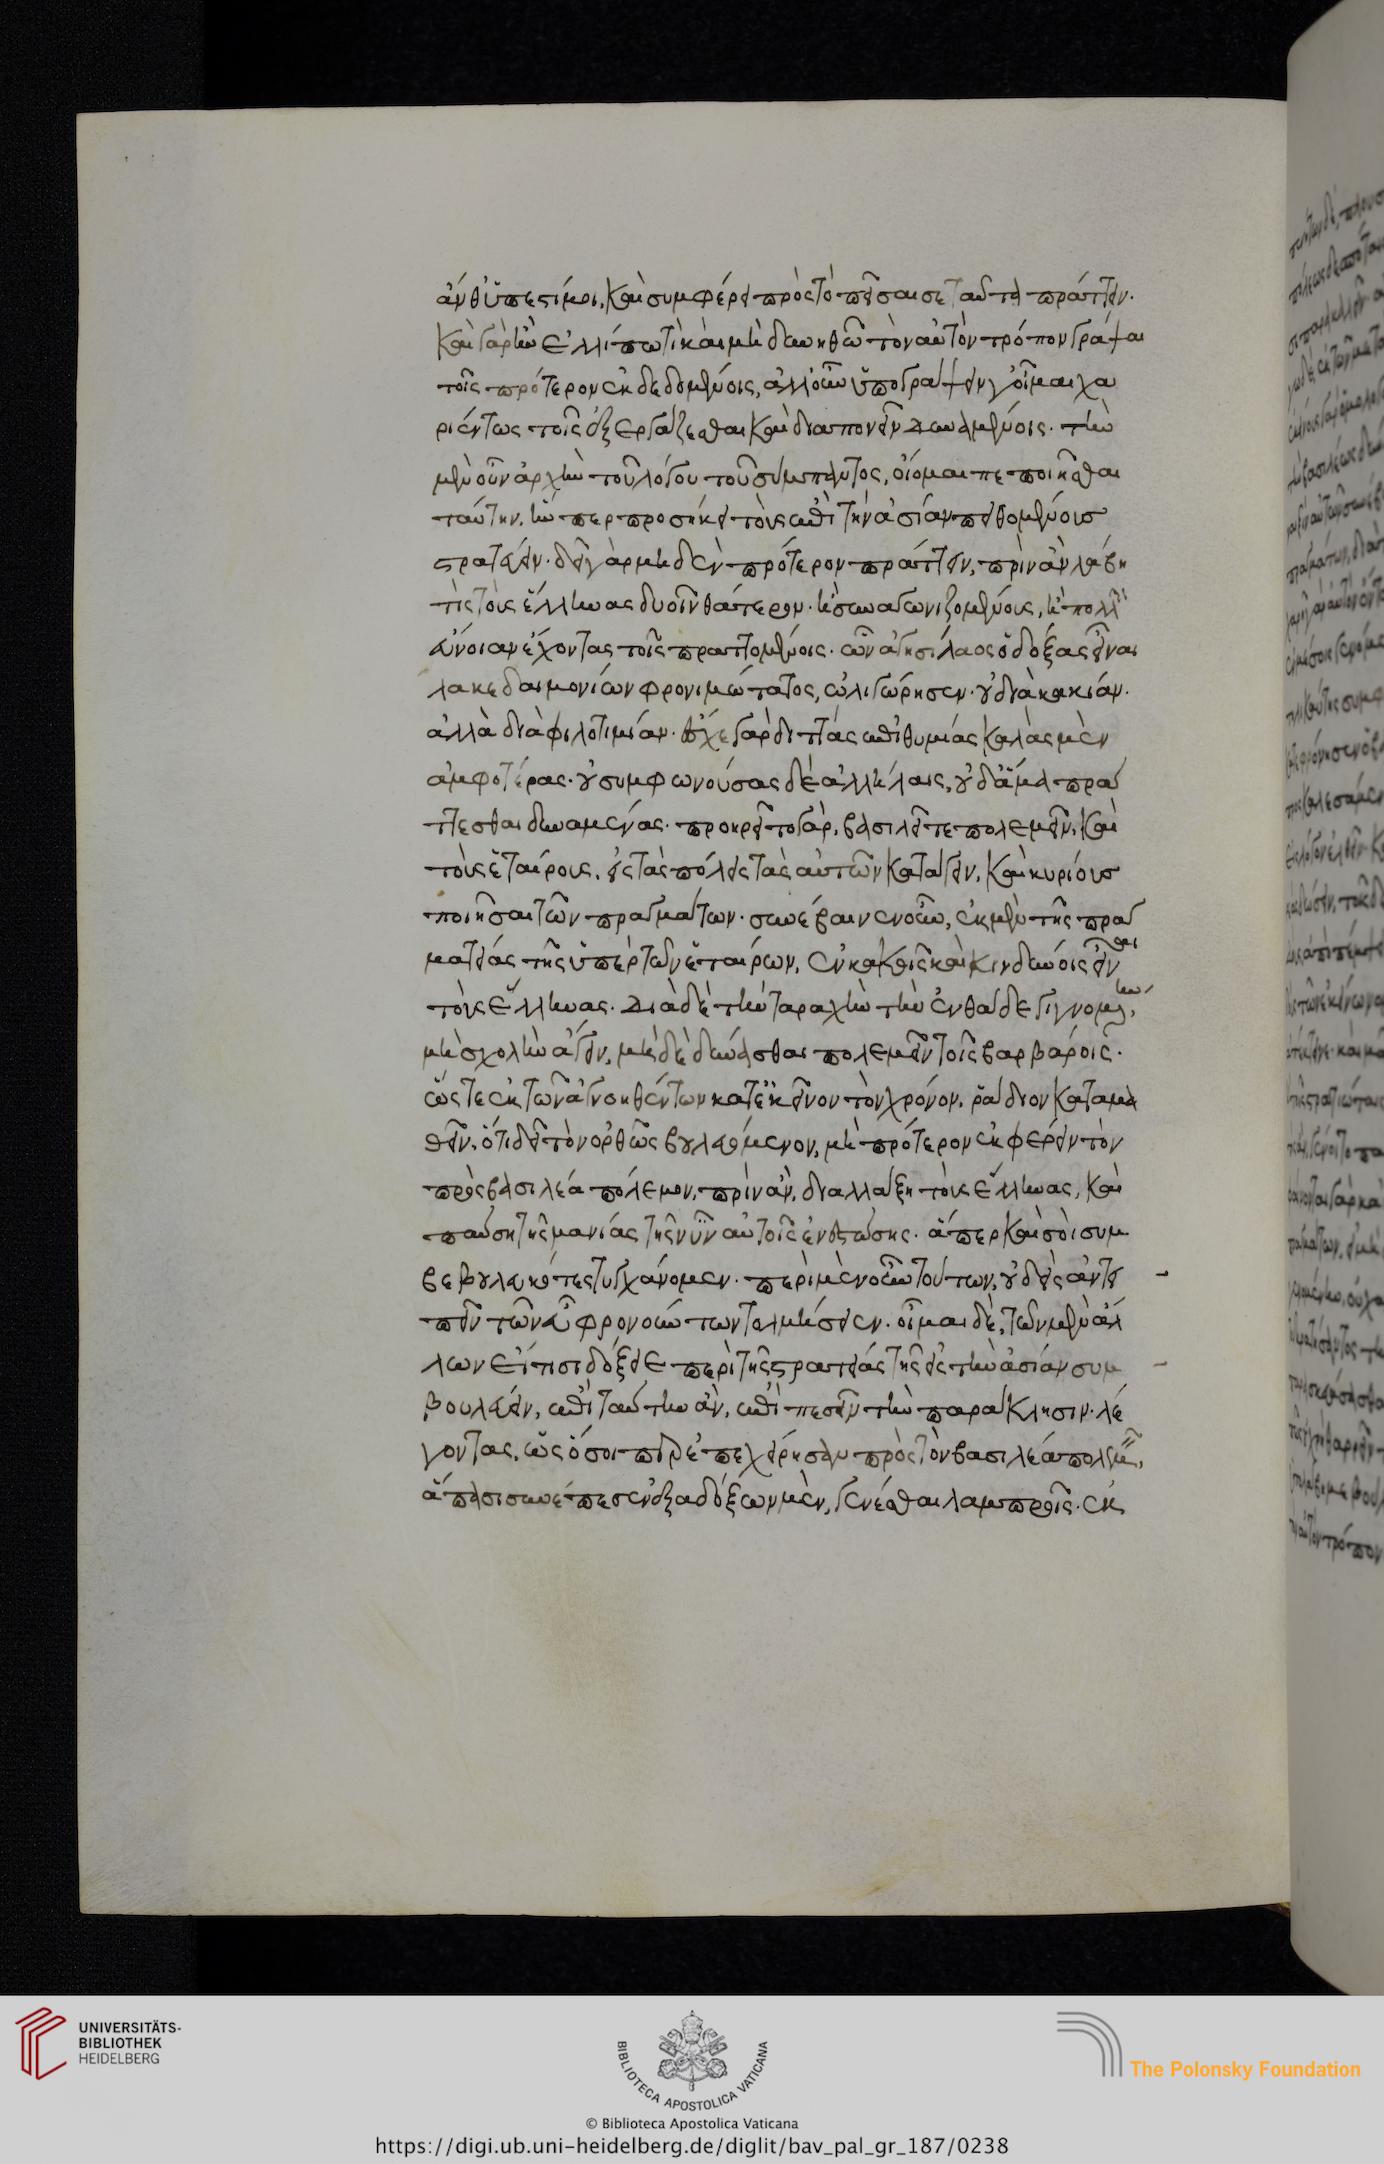 ἀνθύπεστί μοι, καὶ συμφέρει πρὸς τὸ πεῖσαι σε ταῦτα πράττειν.
καὶ γὰρ ἢν ἐλλίπω τι καὶ μὴ δυνηθῶ τὸν αὐτὸν τρόπον γράψαι
τοῖς πρότερον ἐκδεδομένοις, ἀλλ' οὖν ὑπογράψειν γ' οἶμαι χα
ριέντως τοῖς ἐξεργάζεσθαι καὶ διαπονεῖν δυναμένοις. τὴν
μὲν οὖν ἀρχὴν τοῦ λόγου τοῦ σύμπαντος, οἴομαι πεποιῆσθαι
ταύτην, ἥνπερ προσήκει τοὺς ἐπὶ τὴν ἀσίαν πειθομένους
στρατεύειν. δεῖ γὰρ μηδὲν πρότερον πράττειν, πρὶν ἂν λάβῃ
τὶς τοὺς ἕλληνας δυοῖν θάτερον. ἢ συναγωνιζομένους, ἢ πολλὴν
εὔνοιαν ἔχοντας τοῖς πραττομένοις. ὧν ἀγησίλαος ὁ δόξας εἶναι
λακεδαιμονίων φρονιμώτατος, ὠλιγώρησεν. οὐ διὰ κακίαν.
ἀλλὰ διὰ φιλοτιμίαν. ἔσχε γὰρ διττὰς ἐπιθυμίας καλὰς μὲν
ἀμφοτέρας. οὐ συμφωνούσας δὲ ἀλλήλαις, οὐδ' ἅμα πρατ
τεσθαι δυναμένας. προῃρεῖτο γὰρ, βασιλεῖ τε πολεμεῖν, καὶ
τοὺς ἑταίρους, εἰς τὰς πόλεις τὰς αὐτῶν καταγειν, καὶ κυρίους
ποιῆσαι τῶν πραγμάτων. συνέβαινεν οὖν, ἐκ μὲν τῆς πραγ
ματείας τῆς ὑπὲρ τῶν ἑταίρων, ἐν κακοῖς καὶ κινδύνοις εἶναι
τοὺς ἕλληνας. διὰ δὲ τὴν ταραχὴν τὴν ἐνθάδε γιγνομένην,
μὴ σχολὴν ἄγειν, μὴ δὲ δύνασθαι πολεμεῖν τοῖς βαρβάροις.
ὥστε ἐκ τῶν ἀγνοηθέντων κατ' ἐκεῖνον τὸν χρόνον, ῥάδιον καταμα
θεῖν, ὅτι δεῖ τὸν ὀρθῶς βουλευόμενον, μὴ πρότερον ἐκφέρειν τὸν
πρὸς βασιλέα πόλεμον, πρὶν ἂν, διαλλάξῃ τοὺς ἕλληνας, καὶ
παύσῃ τῆς μανίας τῆς νῦν αὐτοῖς ἐνεστώσης. ἅπερ καὶ σοὶ συμ
βεβουλευκότες τυγχάνομεν. περὶ μὲν οὖν τούτων, οὐδεὶς ἀντει
πεῖν τῶν εὖ φρονούντων τολμήσειεν. οἶμαι δὲ, τῶν μὲν ἄλ
λων εἴ τισι δόξειε περὶ τῆς στρατείας τῆς εἰς τὴν ἀσίαν συμ
βουλεύειν, ἐπὶ ταύτην ἂν, ἐπιπεσεῖν τὴν παράκλησιν. λέ
γοντας, ὡς ὅσοι περ ἐπεχείρησαν πρὸς τὸν βασιλέα πολεμεῖν,
ἅπασι συνέπεσεν ἐξ ἀδόξων μὲν, γενέσθαι λαμπροῖς. ἐκ
UNIVERSITÄTS-
BIBLIOTHEK
HEIDELBERG
BIBLIOTECA APOSTOLICA VATICANA
The Polonsky Foundation
© Biblioteca Apostolica Vaticana
https://digi.ub.uni-heidelberg.de/diglit/bav_pal_gr_187/0238